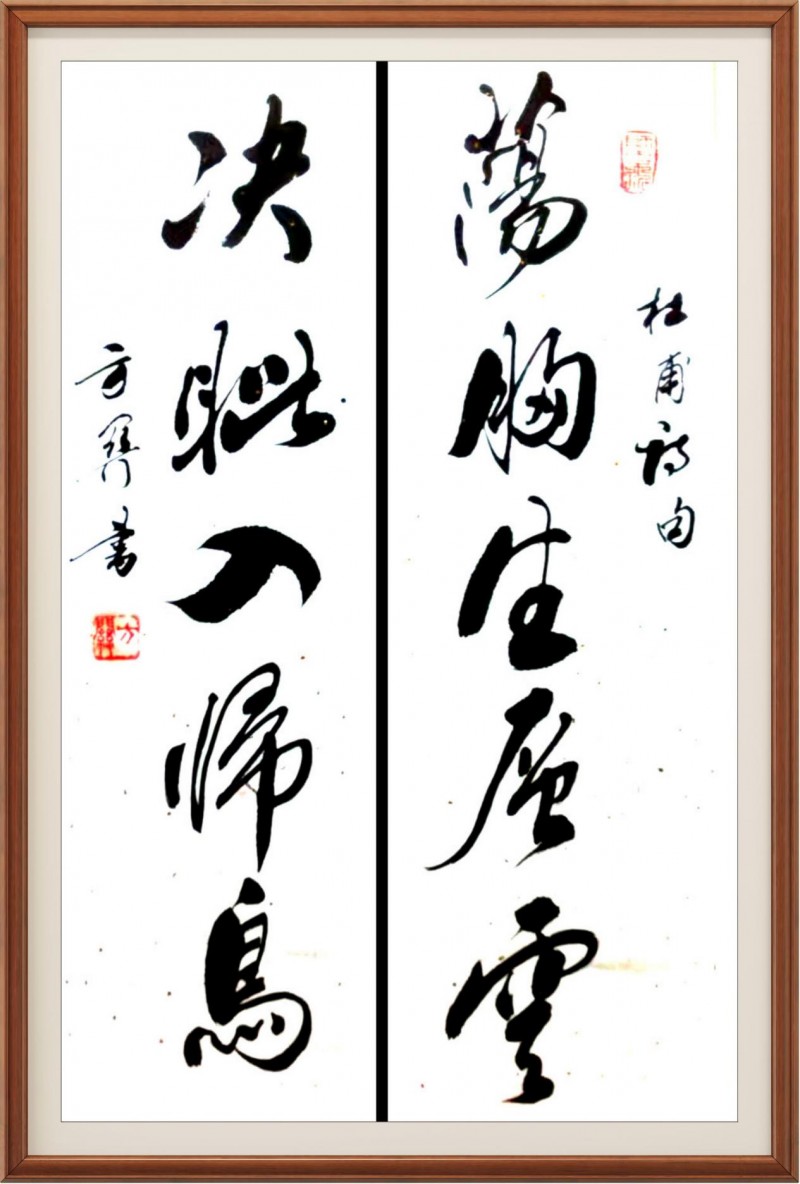 杜甫詩句
蕩胸生層雲
决眦入帰鳥
方書